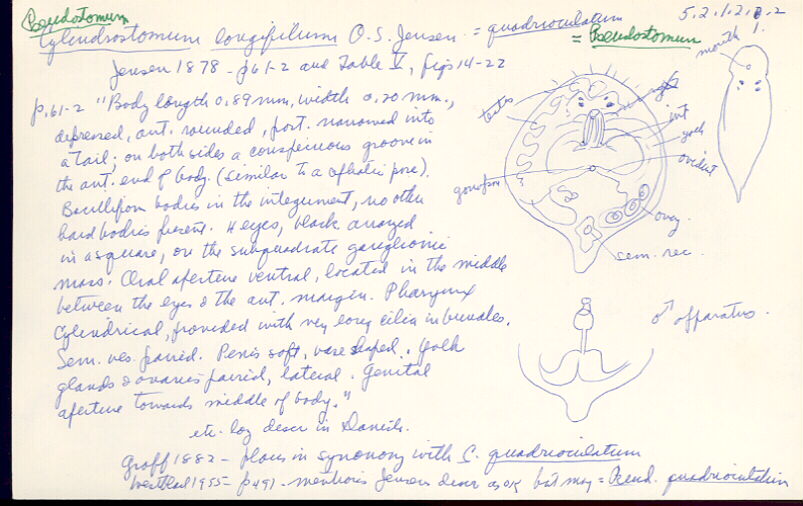 Pseudostomum
5.2.1.2.2.2
Cylindrostomum longifilum O.S. Jensen = quadrioculatum
= Pseudostomum
Jensen 1878 - p61-2 and Table V, figs 14-22
p.61-2 "Body length 0.89mm, width 0.20 mm.,
depressed, ant. rounded, post. narrowed into
a tail; on both sides a conspicuous groove in
the ant. end of body. (similar to a cephalic pore).
Bacilliform bodies in the integument, no other
hard bodies present. 4 eyes, black arranged
in a square, on the subquadrate ganglionic
mass. Oral aperture ventral, located in the middle
between the eyes & the ant. margin. Pharynx
Cylindrical, provided with very long cilia in bundles.
Sem. ves. paired. Penis soft, vase shaped. Yolk
glands & ovaries paired, lateral. Genital
aperture towards middle of body."
etc. long descr in Danish.
Graff 1882 - places in synonomy with C. quadrioculatum
Westblad 1955 - p491 - mentions Jensen descr as OK but may = Pseud. quadrioculatum
mouth
testes
int
yolk
oviduct
gonopore
ovary
sem. rec.
♂ apparatus.